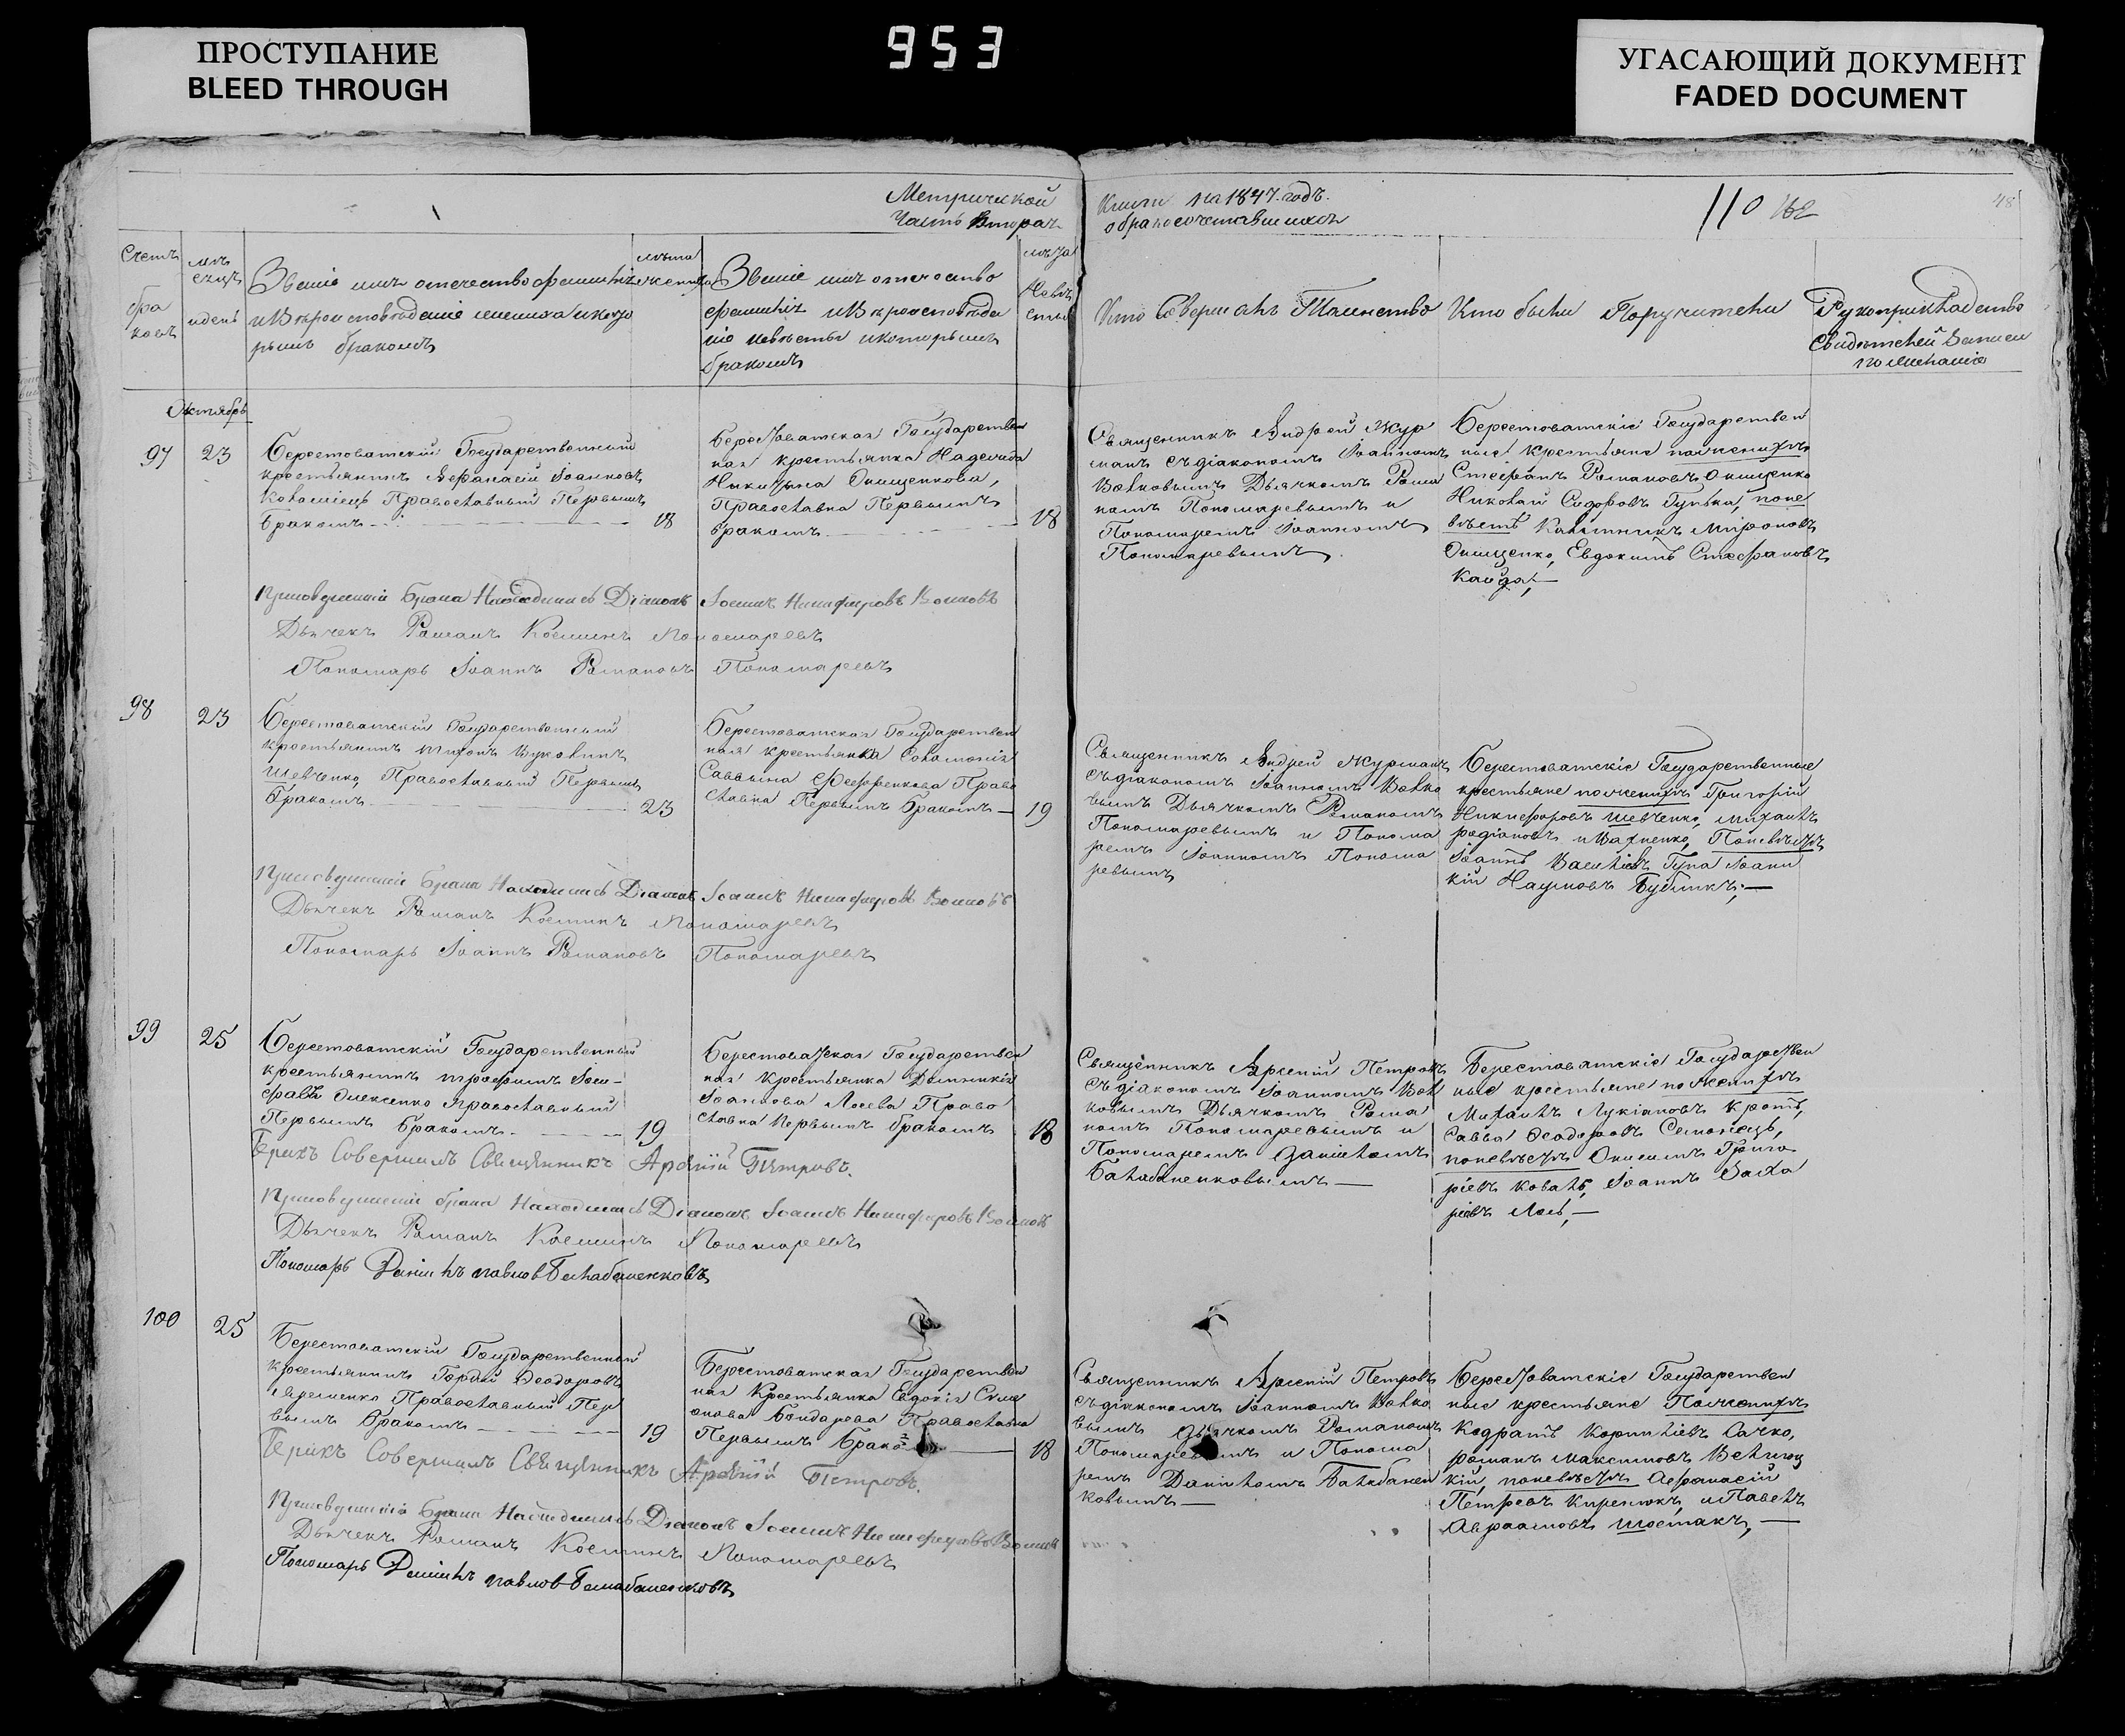 ПРОСТУПАНИЕ
BLEED THROUGH
953
УГАСАЮЩИЙ ДОКУМЕНТ
FADED DOCUMENT
Метрической
Часть Вторая
Книги на 1847. годъ.
о бракосочетавшихся
110
48
Счетъ
бра
ковъ
мѣ
сяцъ
и день
Званіе имя отечество фамилія
и Вѣроисповѣданіе жениха и кото
рымъ бракомъ
лѣта
жениха
Званіе имя отечество
фамилія и Вѣроисповѣда
ніе невѣсты и которымъ
бракомъ
лѣта
Невѣ
сты
Кто Совершалъ Таинство
Кто были Поручители
Рукоприкладство
Свидѣтелей Записи
по желанію
Октябрь
97
23
Берестоватскій Государственный
крестьянинъ Аѳанасій Іоанновъ
Коломіецъ Православный Первымъ
Бракомъ
18
Берестоватская Государствен
ная крестьянка Надежда
Никитина Онищенкова,
Православна Первымъ
бракомъ
18
Священникъ Андрей Жур
манъ съ діакономъ Іоанномъ
Волковымъ Дьячкомъ Рома
номъ Пономаревымъ и
Пономаремъ Іоанномъ
Пономаревымъ.
Берестоватскіе Государствен
ные крестьяне по женихѣ
Стефанъ Романовъ Онищенко
Николай Сидоровъ Гулька, поне
вѣстѣ Калинникъ Мироновъ
Онищенко, Евдокимъ Стефановъ
Кайда,
При Совершеніи Брака Находились Діаконъ Іоаннъ Никифоровъ Волковъ
Дьячекъ Романъ Косминъ Пономаревъ
Пономарь Іоаннъ Романовъ Пономаревъ
98
23
Берестоватскій Государственный
крестьянинъ Тихонъ
Шевченко, Православный Первымъ
Бракомъ
23
Берестоватская Государствен
ная крестьянка Соломонія
Саввина Право
славна Первымъ Бракомъ
19
Священникъ Андрей Журманъ
съ діакономъ Іоанномъ Волко
вымъ Дьячкомъ Романомъ
Пономаревымъ и Понома
ремъ Іоанномъ Понома
ревымъ
Берестоватскіе Государственные
крестьяне по женихѣ Григорій
Никифоровъ Шевченко, Михаилъ
Родіоновъ Поневѣстѣ
Іоаннъ Васильевъ Гупа Іоанни
кій Наумовъ Бубликъ;
При Совершеніи Брака Находились Діаконъ Іоаннъ Никифоровъ Волковъ
Дьячекъ Романъ Косминъ Пономаревъ
Пономарь Іоаннъ Романовъ Пономаревъ
99
25
Берестоватскій Государственный
крестьянинъ Трофимъ Іоси-
фовъ Олексенко Православный
Первымъ Бракомъ.
19
Берестоватская Государствен
ная Крестьянка Домникія
Іоаннова Лосева Право
славна Первымъ бракомъ
18
Священникъ Арсеній Петровъ
съ діакономъ Іоанномъ Вол
ковымъ Дьячкомъ Рома
номъ Пономаревымъ и
Пономаремъ Даніиломъ
Балабаненковымъ
Берестоватскіе Государствен
ные крестьяне по женихѣ
Михаилъ Лукіановъ Кротъ,
Савва Ѳеодоровъ
поневѣстѣ Онисимъ Григо
ріевъ Коваль, Іоаннъ Заха
ріевъ Лось,
Бракъ Совершалъ Священникъ Арсеній Петровъ.
При Совершеніи брака Находились Діаконъ Іоаннъ Никифоровъ Волковъ
Дьячекъ Романъ Косминъ Пономаревъ
Пономарь Даніилъ Павлов Балабаненковъ
100
25
Берестоватскій Государственный
Крестьянинъ Гордій Ѳеодоровъ
Яременко Православный Пер
вымъ Бракомъ
19
Берестоватская Государствен
ная Крестьянка Евдокія Симе
онова Бондарева Православна
Первымъ Бракомъ
18
Священникъ Арсеній Петровъ
съ діакономъ Іоанномъ Волко
вымъ Дьячкомъ Романомъ
Пономаревымъ и Понома
ремъ Даніиломъ Балабанен
ковымъ
Берестоватскіе Государствен
ные крестьяне По женихѣ
Кодратъ Корниліевъ Сачко,
Романъ Максимовъ Велиц
кій, поневѣстѣ Аѳанасій
Петровъ и Павелъ
Авраамовъ Шостакъ,
Бракъ Совершалъ Священникъ Арсеній Петровъ.
При Совершеніи Брака Находились Діаконъ Іоаннъ Никифоровъ Волковъ
Дьячекъ Романъ Косминъ Пономаревъ
Пономарь Даніилъ Павлов Балабаненковъ